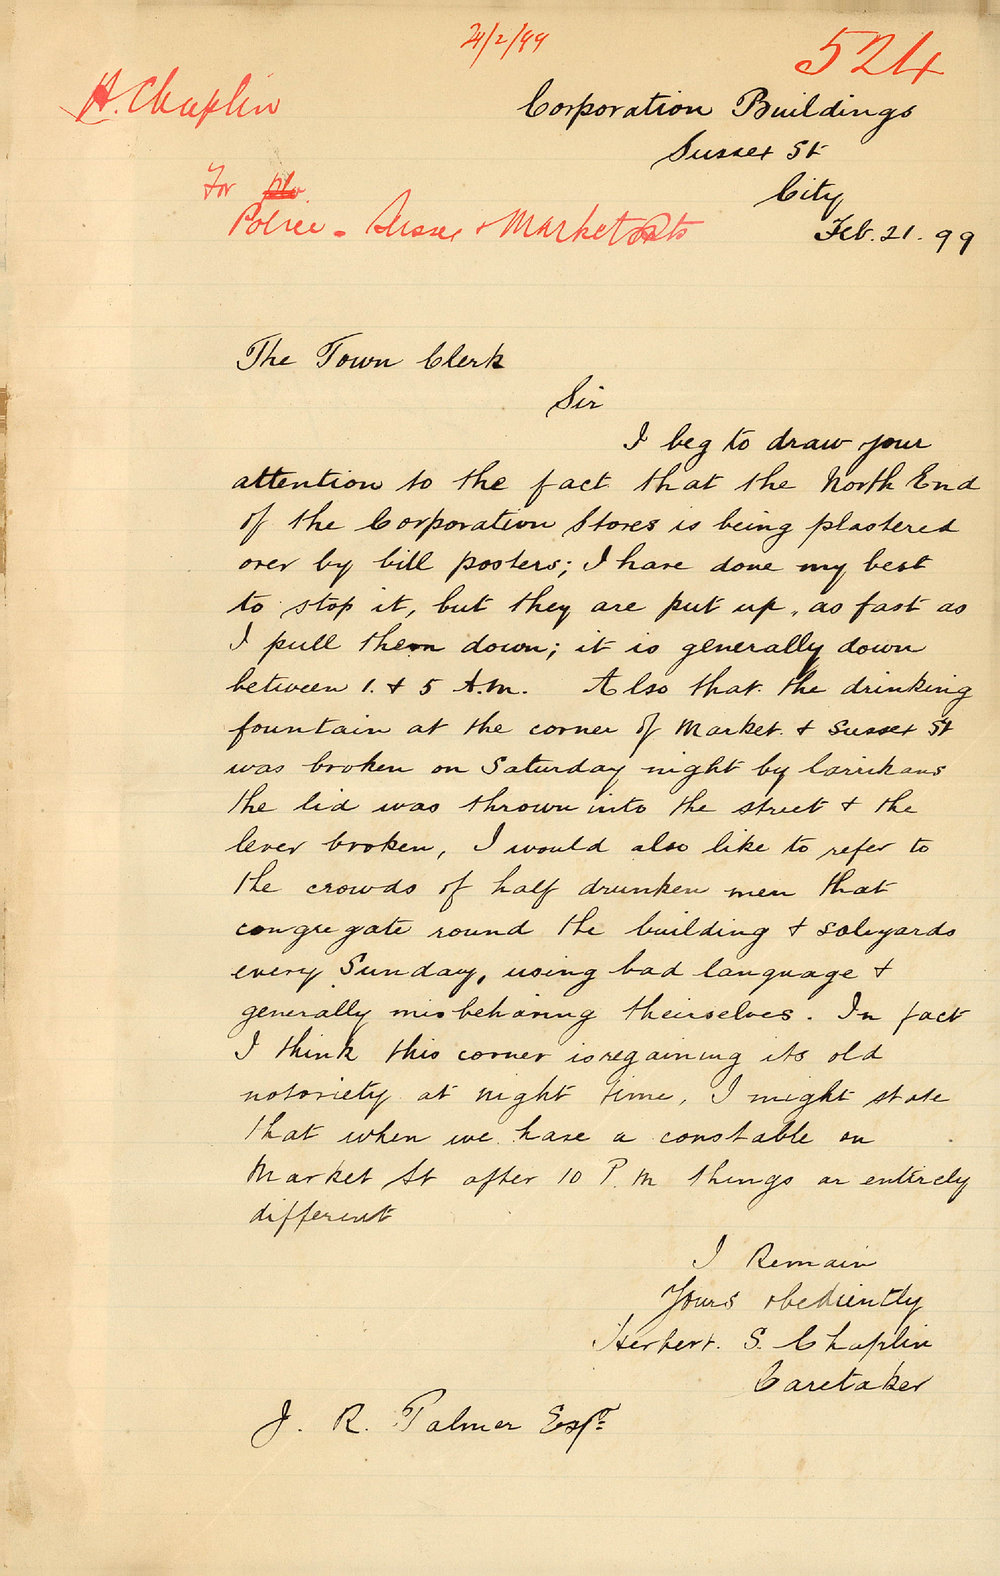 21/2/99
524
H. Chaplin
Corporation Buildings
Sussex St
City
Feb. 21. 99
For
Police - Sussex & Market Sts
The Town Clerk
Sir
I beg to draw your
attention to the fact that the North End
of the Corporation Stores is being plastered
over by bill posters; I have done my best
to stop it, but they are put up, as fast as
I pull them down; it is generally down
between 1. & 5 A.M. Also that the drinking
fountain at the corner of Market. & Sussex St
was broken on Saturday night by larrikans
the lid was thrown into the street & the
lever broken, I would also like to refer to
the crowds of half drunken men that
congregate round the building & saleyards
every Sunday, using bad language &
generally misbehaving theirselves. In fact
I think this corner is regaining its old
notoriety at night time, I might state
that when we have a constable on
Market St after 10 P.M things ar entirely
different
I Remain
Yours obediently
Herbert. S. Chaplin
Caretaker
J. R. Palmer Esqr